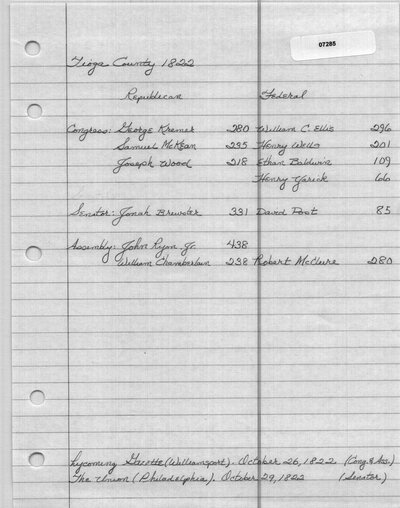 07285
Tioga County 1822
Republican Federal
Congress: George Kremer 280 William C. Ellis 296
Samuel McKean 295 Henry Wells 201
Joseph Wood 218 Ethan Baldwin 109
Henry Yarick 66
Senator: Jonah Brewster 331 David Post 85
Assembly: John Ryon Jr. 438
William Chamberlain 238 Robert McClure 280
Lycoming Gazette (Williamsport). October 26, 1822 (Cong. & Ass.)
The Union (Philadelphia). October 29, 1822 (Senator)